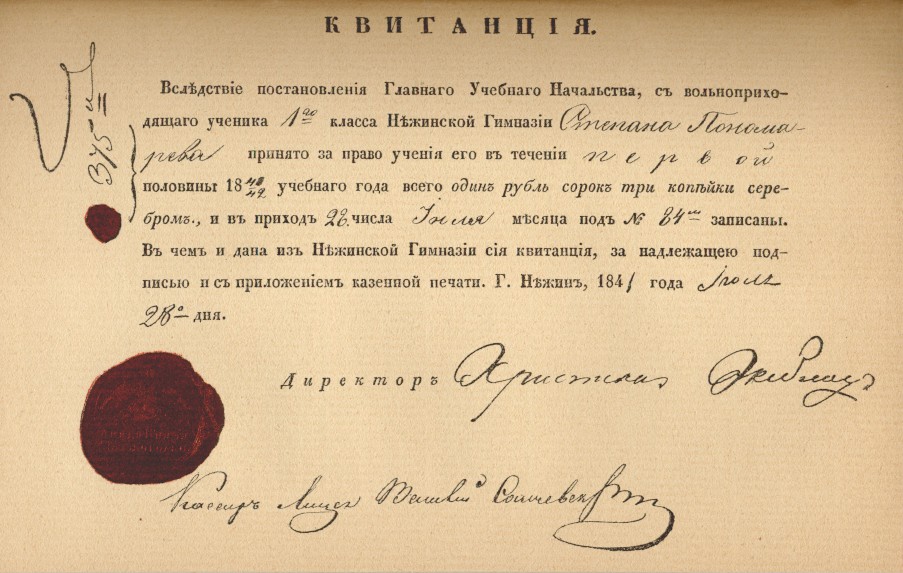 КВИТАНЦІЯ.
Вслѣдствіе постановленія Главнаго Учебнаго Начальства, съ вольноприхо-
дящаго ученика 1го класса Нѣжинской Гимназіи Степана Понома-
рева принято за право ученія его въ теченіи первой
половины 18 учебнаго года всего одинъ рубль сорок три копѣйки сере-
бромъ., и въ приходъ 28 числа Іюля мѣсяца подъ № 84 записаны.
Въ чем и дана изъ Нѣжинской Гимназіи сія квитанція, за надлежащею под-
писью и съ приложеніемъ казенной печати. Г. Нѣжин, 1841 года Іюля
28о дня.
Директоръ Христіан Экеблад
Касиръ Лицея
375